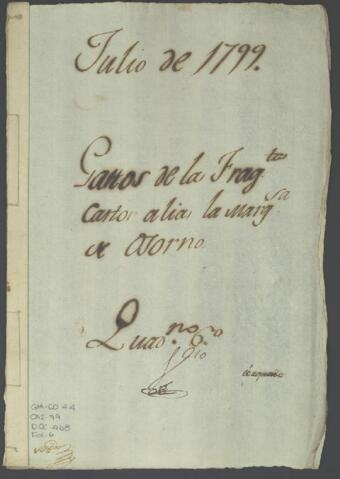 Julio de 1799.
Gastos de la Frag.ta
Carlos alias la Marg.ta
de Osorno.
Quad.no 6.o
GM-CO 44
CAJ-79
DOC-468
Fol-6